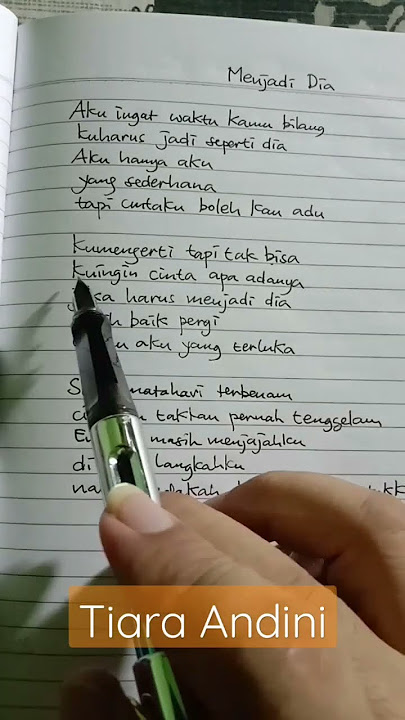 Menjadi Dia
Aku ingat waktu kamu bilang
kuharus jadi seperti dia
Aku hanya aku
yang sederhana
tapi cintaku boleh kau adu
kumengerti tapi tak bisa
kuingin cinta apa adanya
harus menjadi dia
baik pergi
aku yang terluka
matahari terbenam
takkan pernah tenggelam
masih menjajahku
di langkahku
Tiara Andini